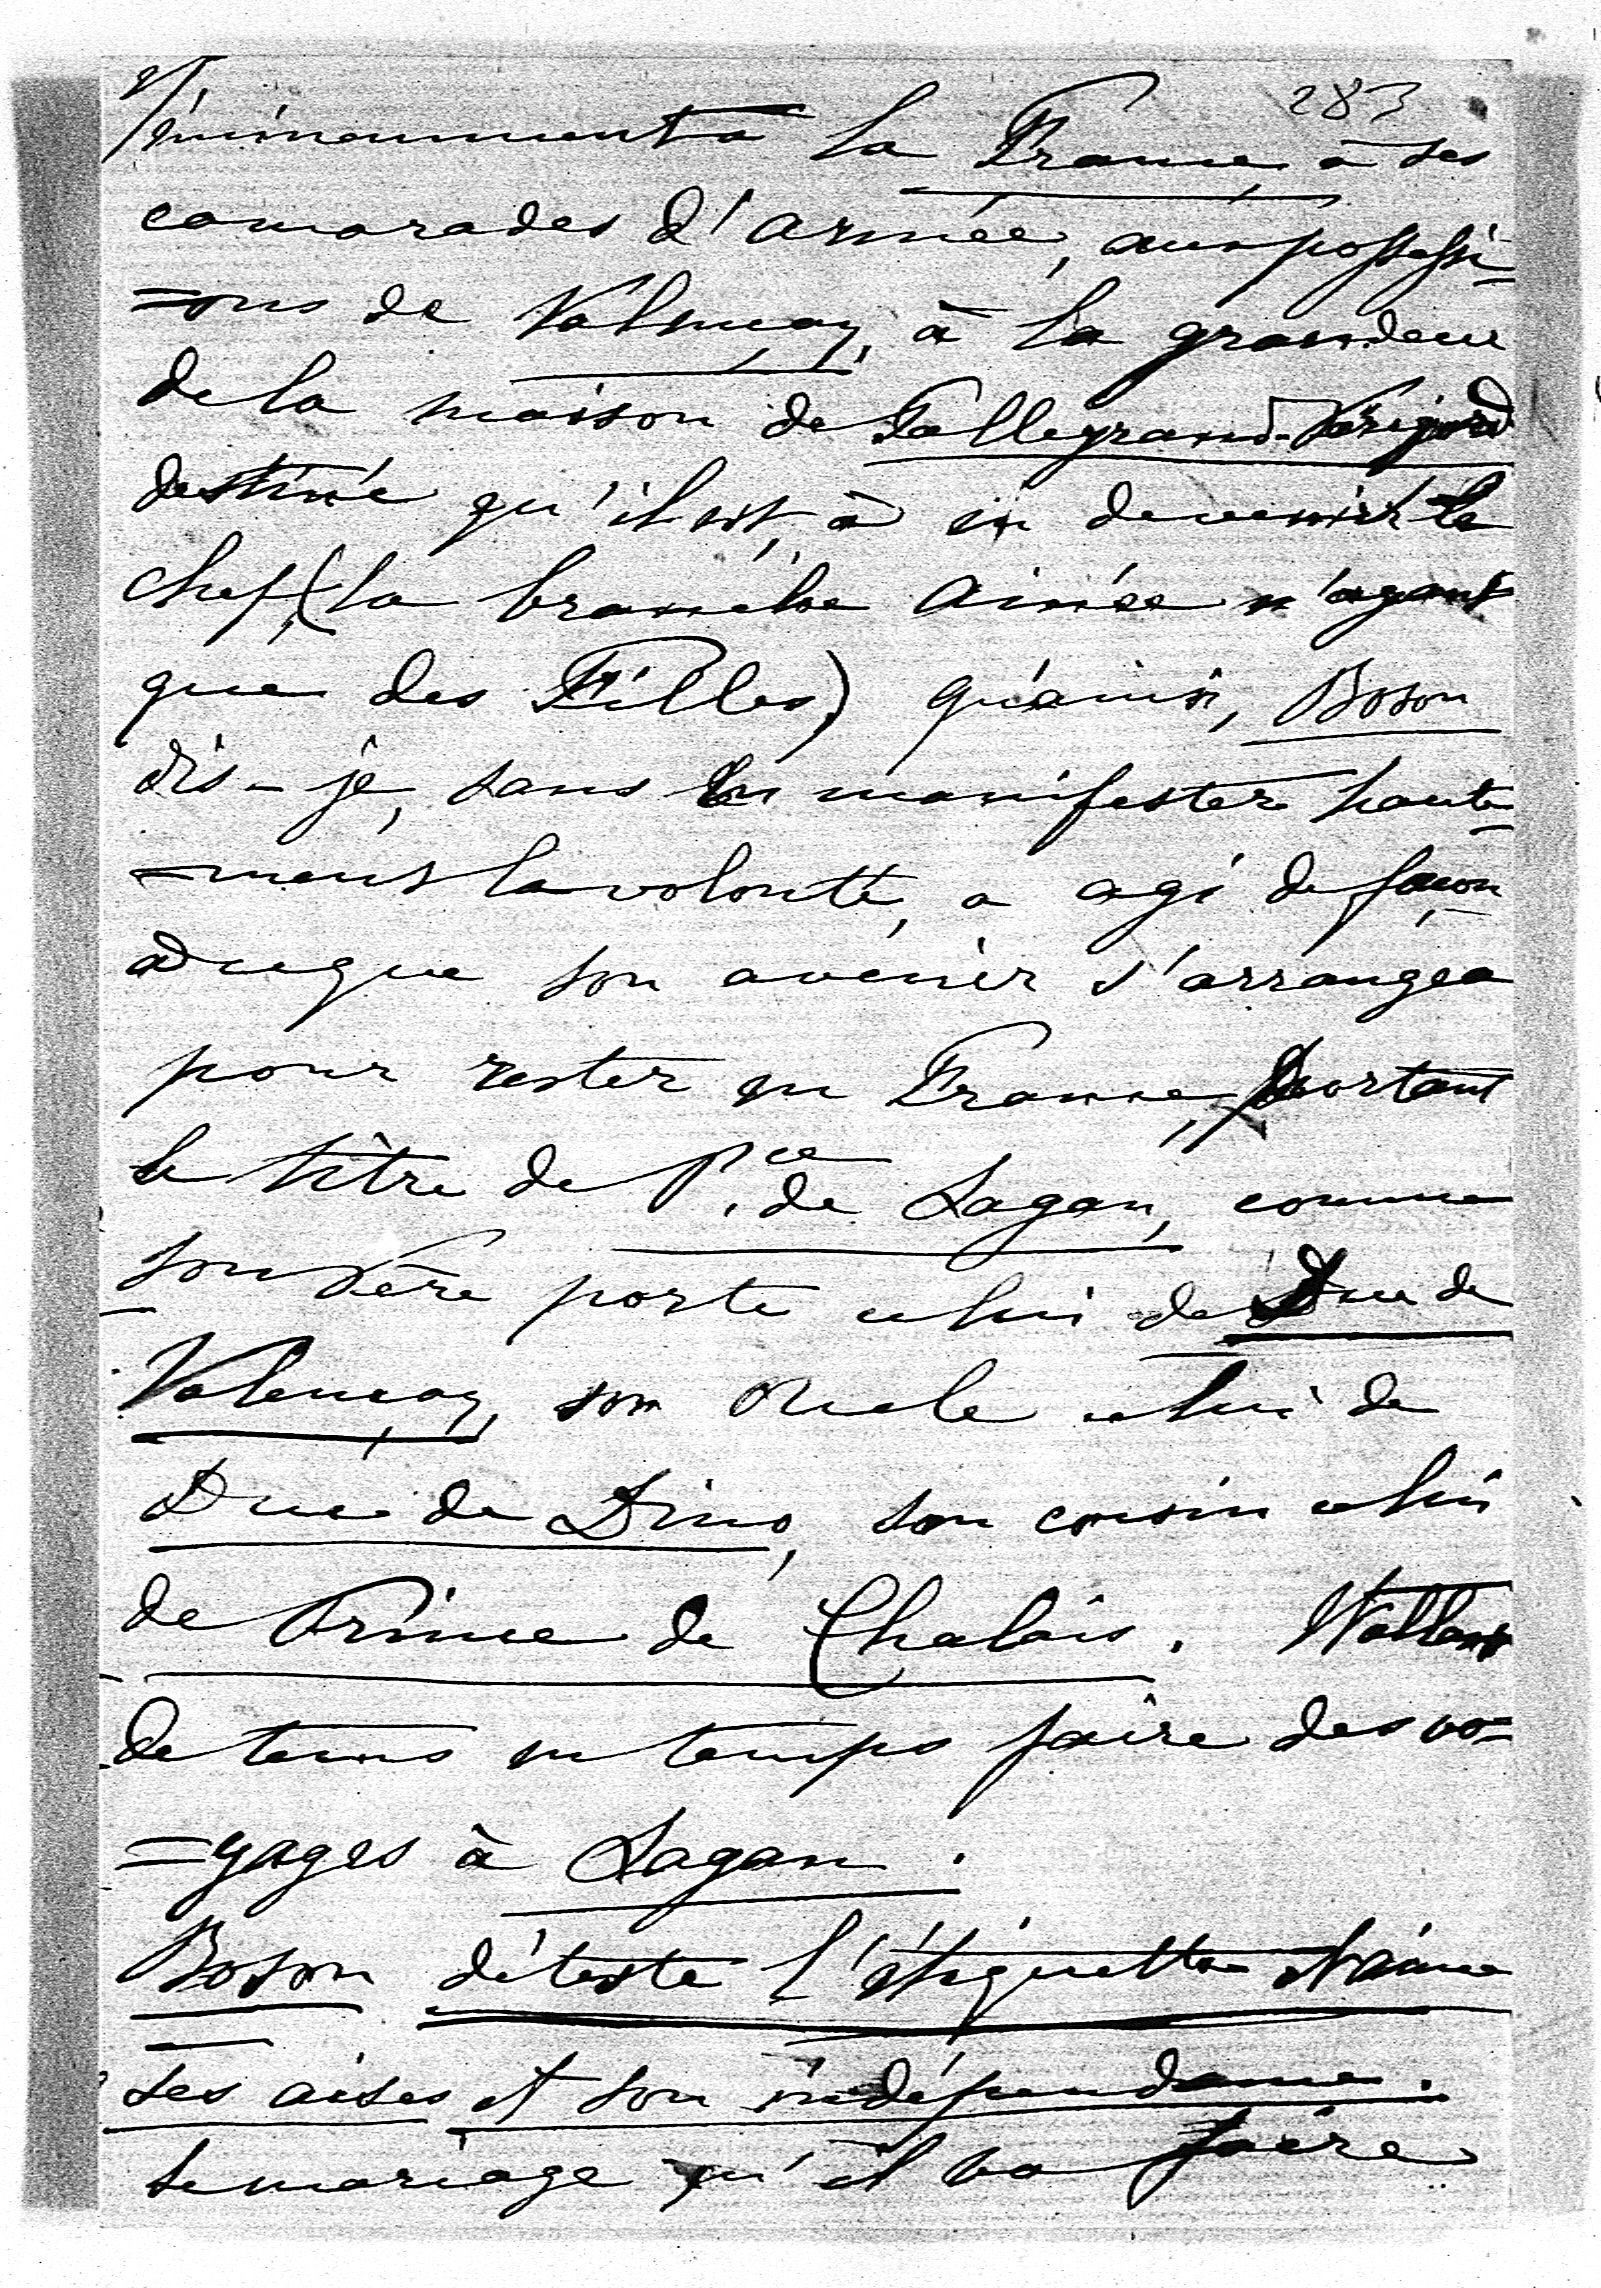 283
éminemment à la France, à ses
camarades d'armée, aux possessi-
=ons de Valençay, à la grandeur
de la maison de Talleyrand-Périgord
destiné qu'il est, à en devenir le
chef, (la branche ainée n'ayant
que des Filles,) qu'ainsi, Boson
dis-je, sans en manifester haute-
=ment la volonté, a agi de façon
à ce que son avenir s'arrangea
pour rester en France, portant
le titre de P.ce de Sagan, comme
son Père porte celui de Duc de
Valençay, son oncle celui de
Duc de Dino, son cousin celui
de Prince de Chalais.
de tems en temps faire des vo=
=yages à Sagan.
Boson déteste l'étiquette et aime
ses aises et son indépendance.
Le mariage qu'il va faire